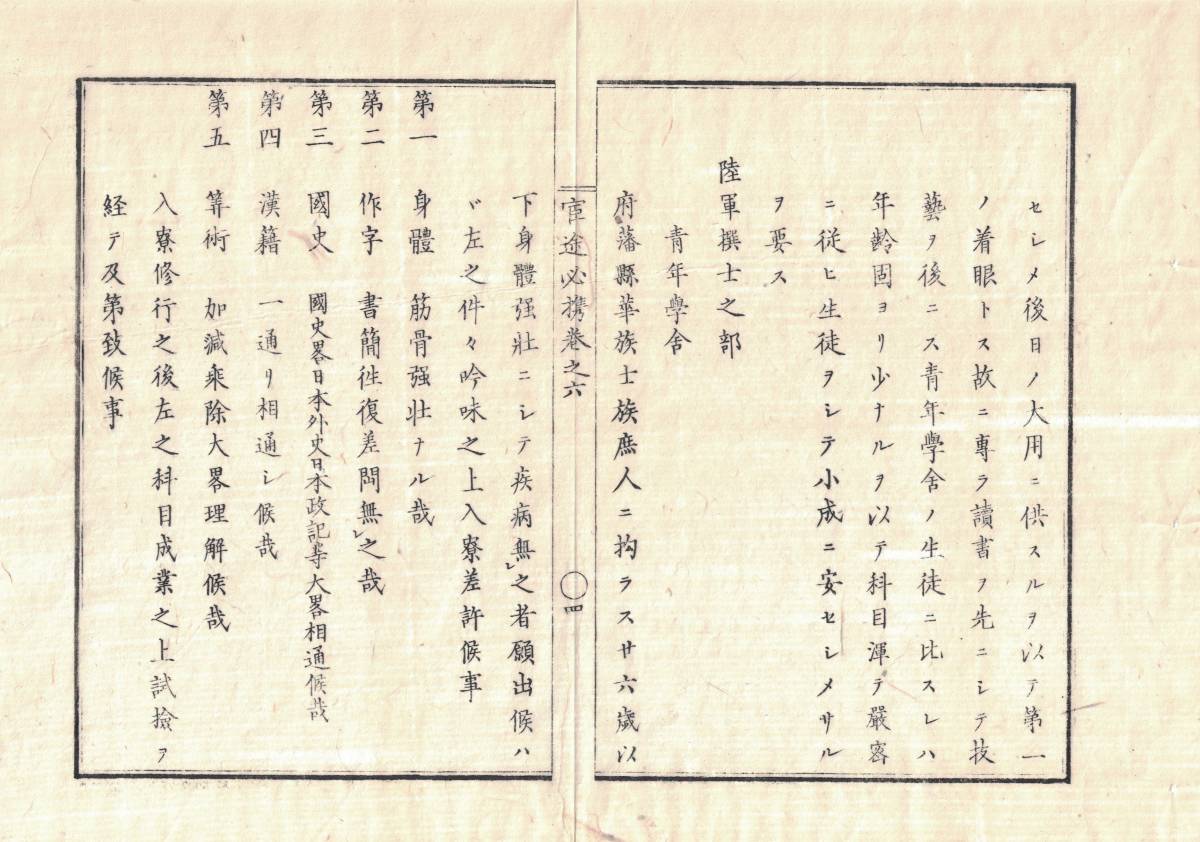 セシメ後日ノ大用ニ供スルヲ以テ第一
ノ着眼トス故ニ專ラ讀書ヲ先ニシテ技
藝ヲ後ニス青年學舍ノ生徒ニ比スレハ
年齡固ヨリ少ナルヲ以テ科目渾テ嚴密
ニ従ヒ生徒ヲシテ小成ニ安セシメサル
ヲ要ス
陸軍撰士之部
青年學舍
府藩縣華族士族庶人ニ拘ラス廿六歳以
官途必携巻之六
〇四
下身體强壯ニシテ疾病無レ之者願出候ハ
ヾ左之件々吟味之上入寮差許候事
第一 身體 筋骨强壯ナル哉
第二 作字 書簡徃復差閊無レ之哉
第三 國史 國史畧日本外史日本政記等大畧相通候哉
第四 漢籍 一通リ相通シ候哉
第五 筭術 加減乘除大畧理解候哉
入寮修行之後左之科目成業之上試撿ヲ
経テ及第致候事